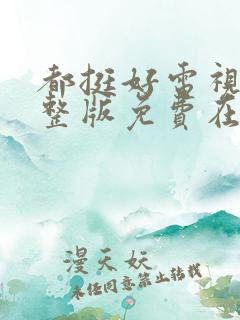 都挺好電視
整版免費在
漫天妖
未经同意禁止转载